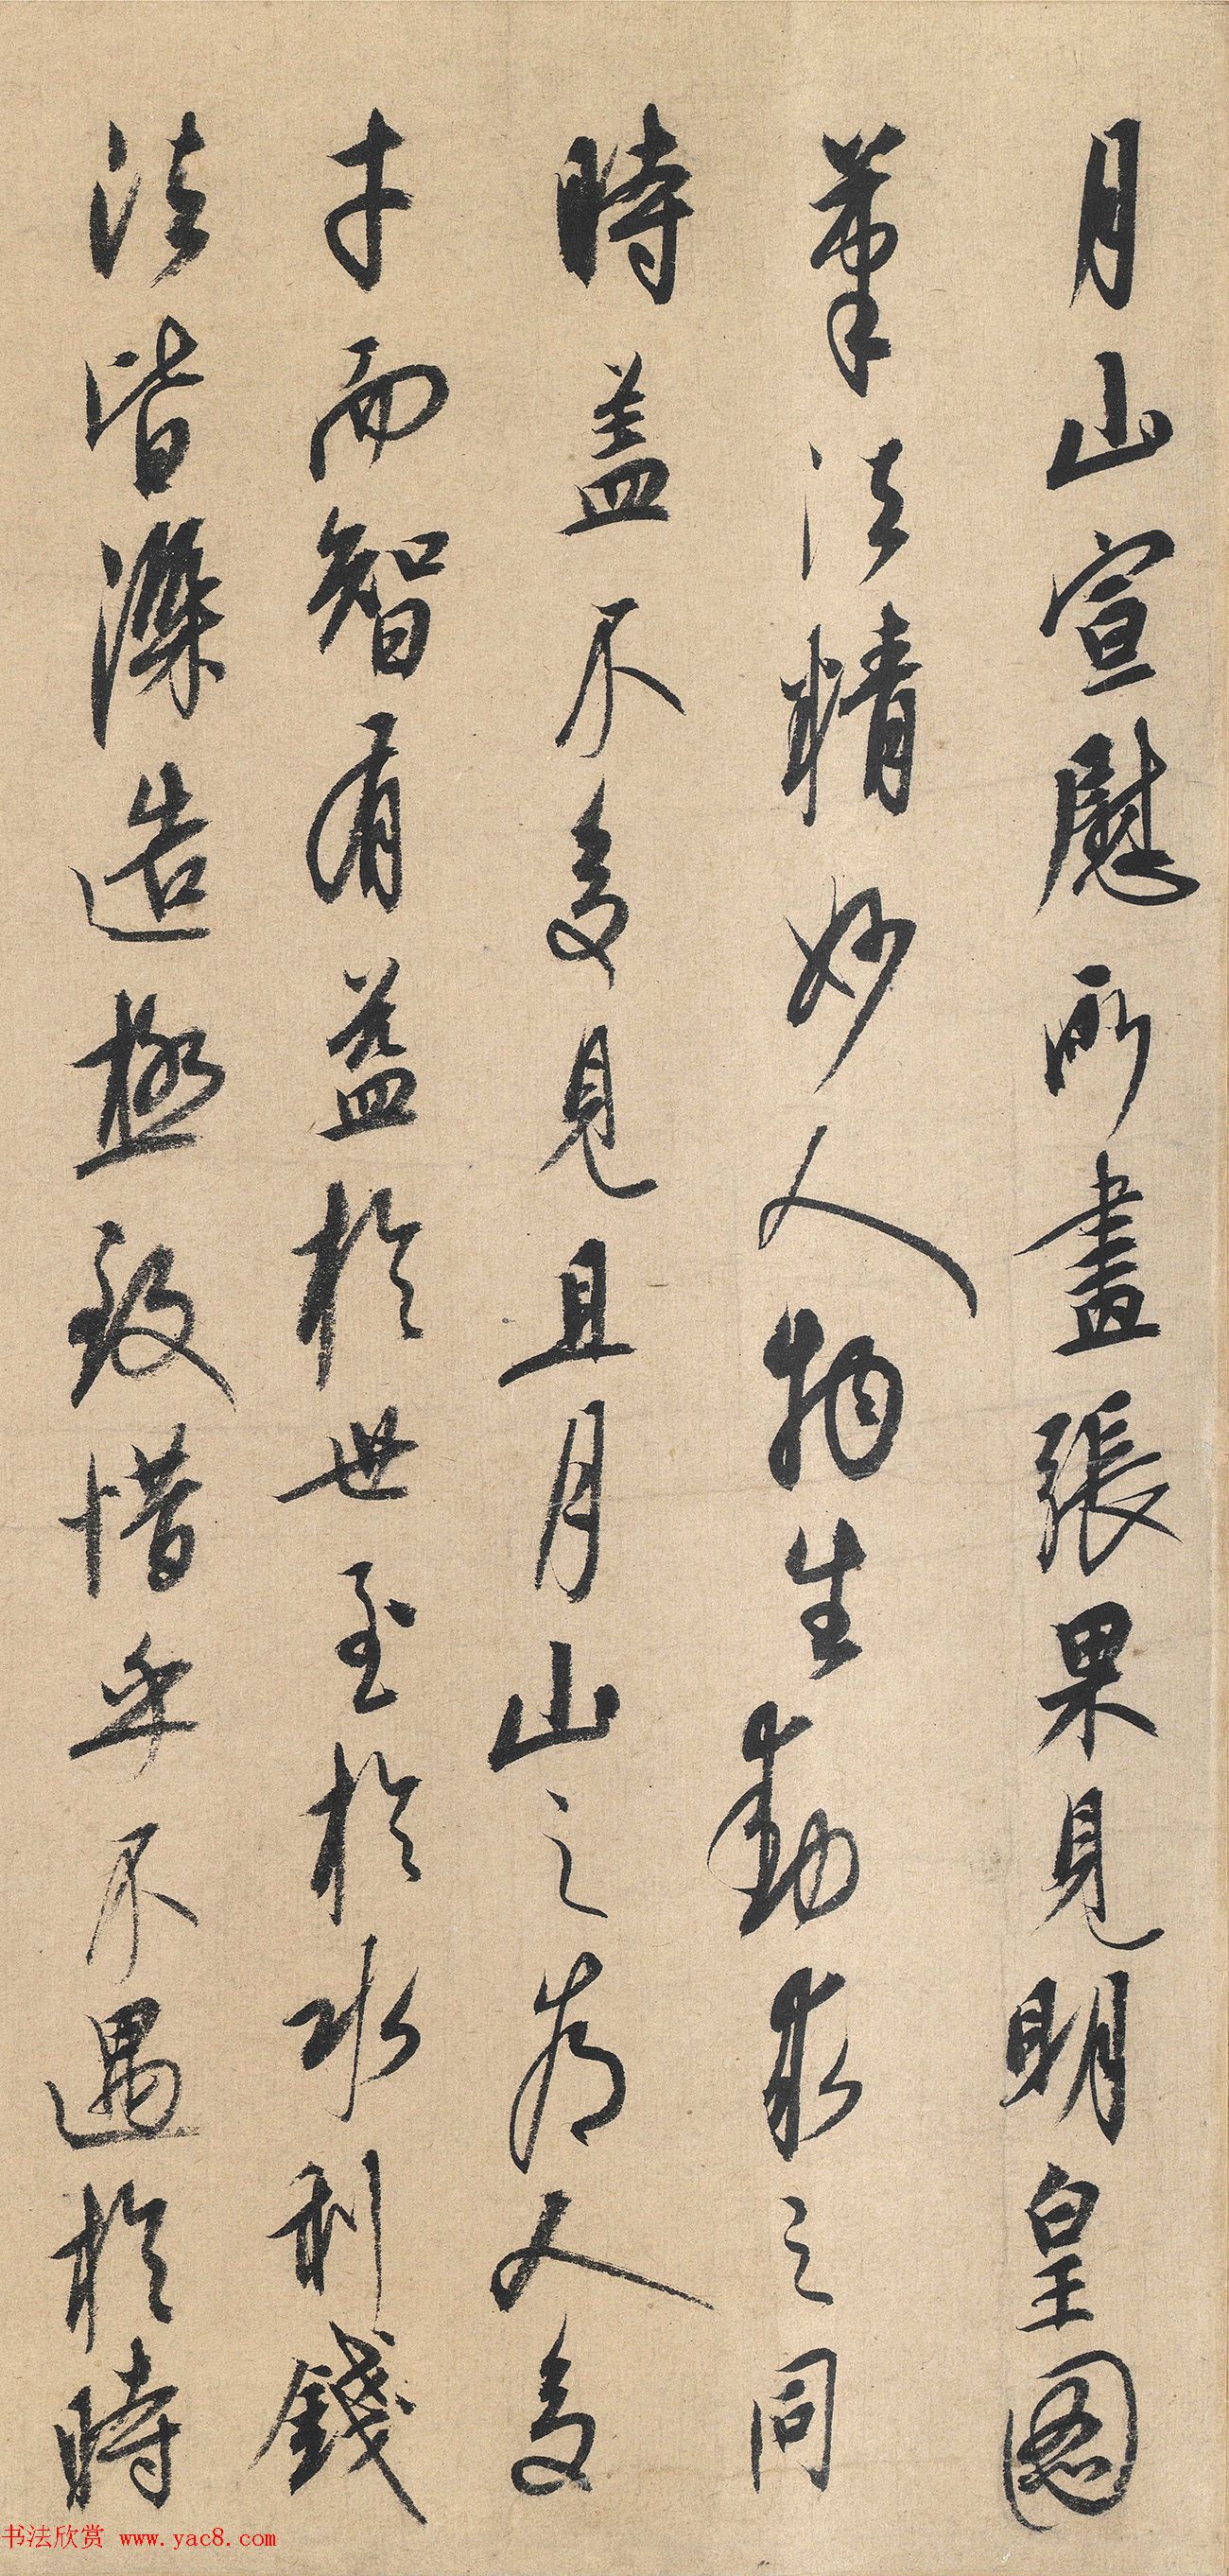 月山宣慰所畫張果見明皇圖
筆法精妙人物生動求之同
時蓋不多見且月山之爲人多
才而智有益於世至於水利錢
法皆深造極致惜乎不遇於時
书法欣赏 www.yac8.com